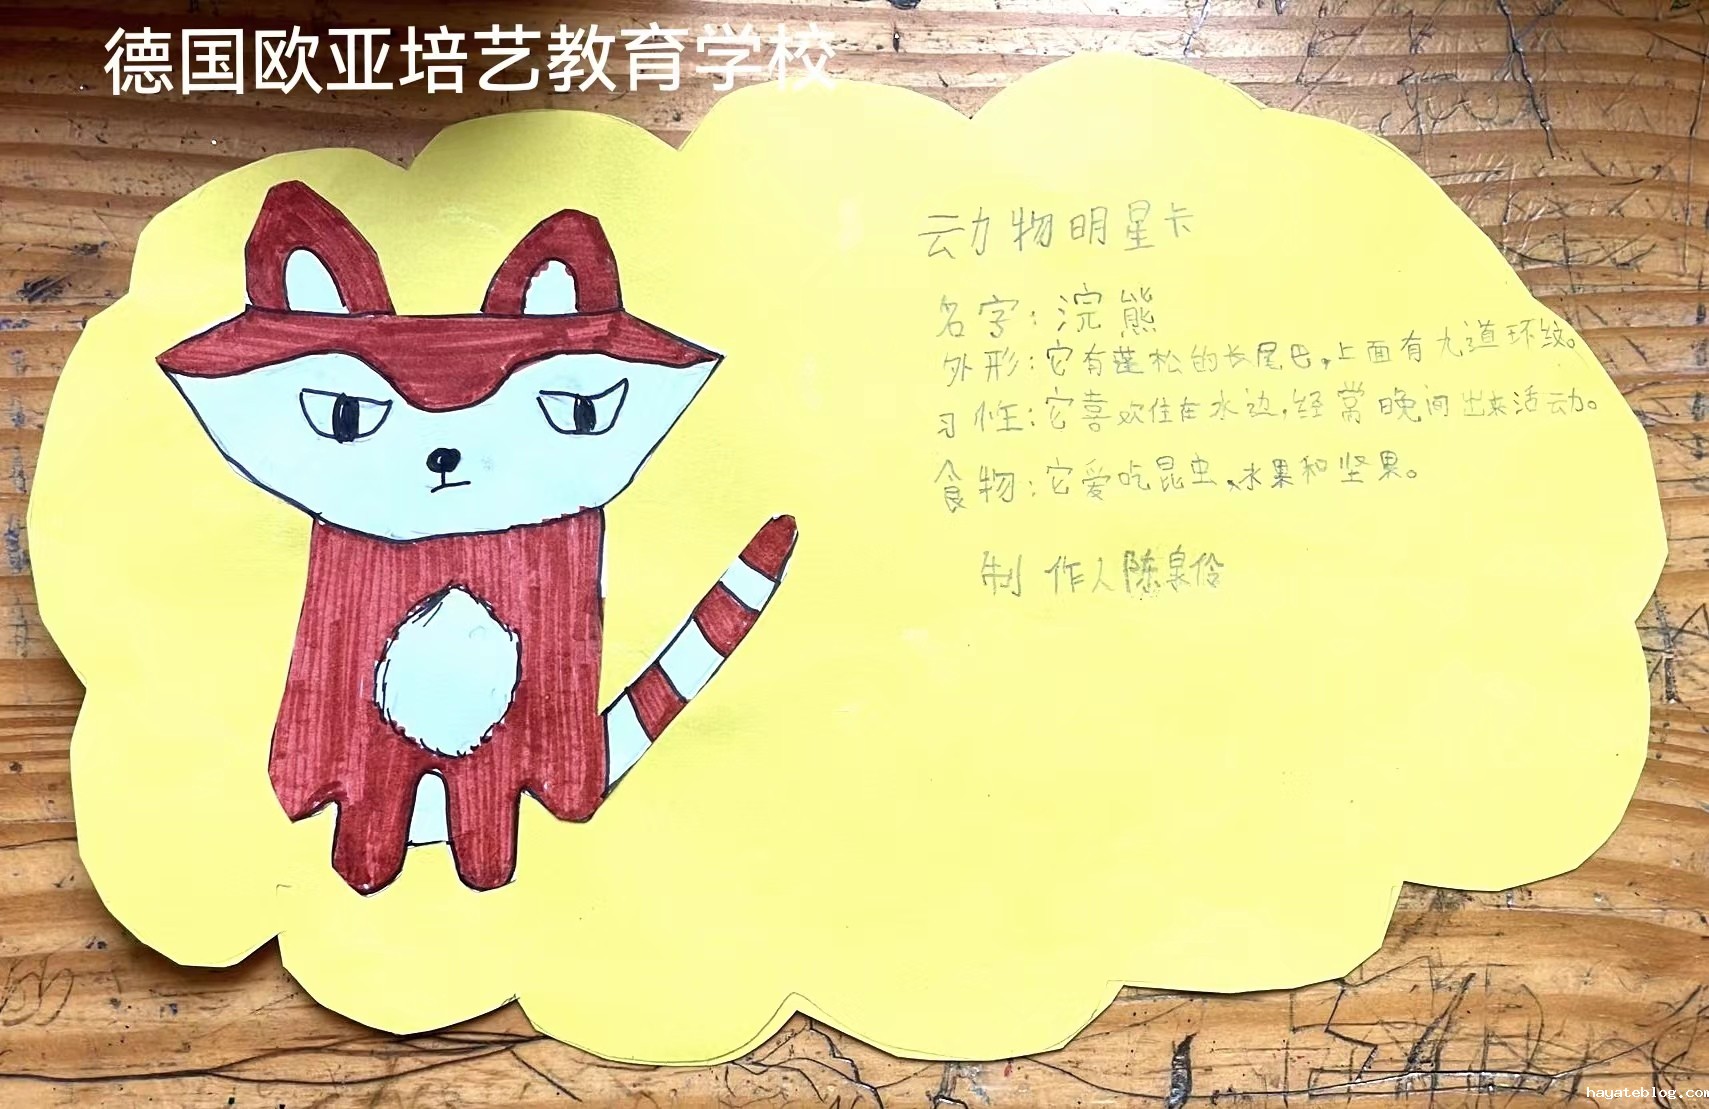 德国欧亚培艺教育学校
动物明星卡
名字：浣熊
外形：它有蓬松的长尾巴，上面有九道环纹。
习性：它喜欢住在水边，经常晚间出来活动。
食物：它爱吃昆虫、水果和坚果。
制作人陈泉伶
hayateblog.com